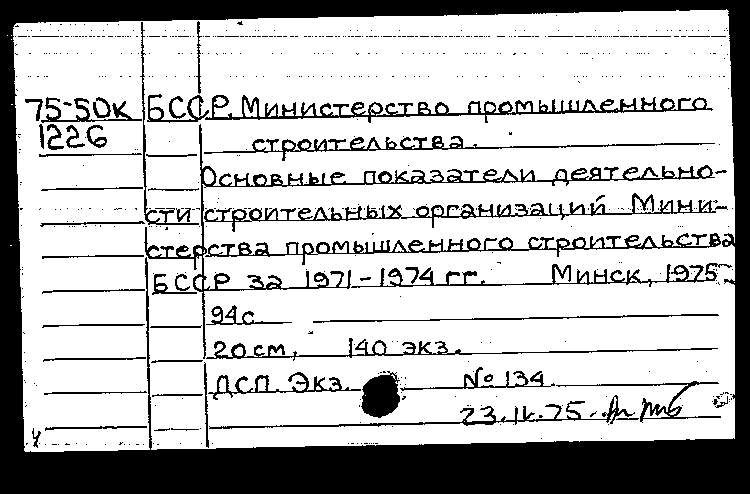 75-50к БССР. Министерство промышленного
1226 строительства.
Основные показатели деятельно-
сти строительных организаций Мини-
стерства промышленного строительства
БССР за 1971-1974 гг. Минск, 1975.
94с
20см, 140 экз.
ДСП. Экз. № 134
23.IV.75.